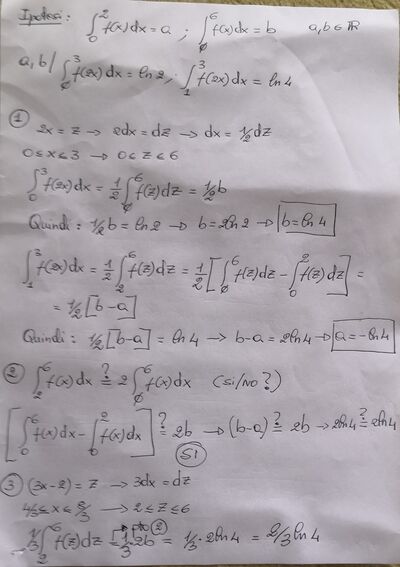 Ipotesi: ∫₀² f(x)dx = a ; ∫₀⁶ f(x)dx = b a,b ∈ ℝ
a,b / ∫₀³ f(2x)dx = ln2 ; ∫₁³ f(2x)dx = ln4
① 2x = z → 2dx = dz → dx = 1/2 dz
0 ≤ x ≤ 3 → 0 ≤ z ≤ 6
∫₀³ f(2x)dx = 1/2 ∫₀⁶ f(z)dz = 1/2 b
Quindi: 1/2 b = ln2 → b = 2ln2 → b = ln4
∫₁³ f(2x)dx = 1/2 ∫₂⁶ f(z)dz = 1/2 [∫₀⁶ f(z)dz - ∫₀² f(z)dz] =
= 1/2 [b-a]
Quindi: 1/2 [b-a] = ln4 → b-a = 2ln4 → a = -ln4
② ∫₂⁶ f(x)dx ?= 2 ∫₀⁶ f(x)dx (si/no?)
[∫₀⁶ f(x)dx - ∫₀² f(x)dx] ?= 2b → (b-a) ?= 2b → 2ln4 ?= 2ln4
SI
③ (3x-2) = z → 3dx = dz
4/3 ≤ x ≤ 8/3 → 2 ≤ z ≤ 6
1/3 ∫₂⁶ f(z)dz = 1/3 · 2b = 1/3 · 2ln4 = 2/3 ln4
②